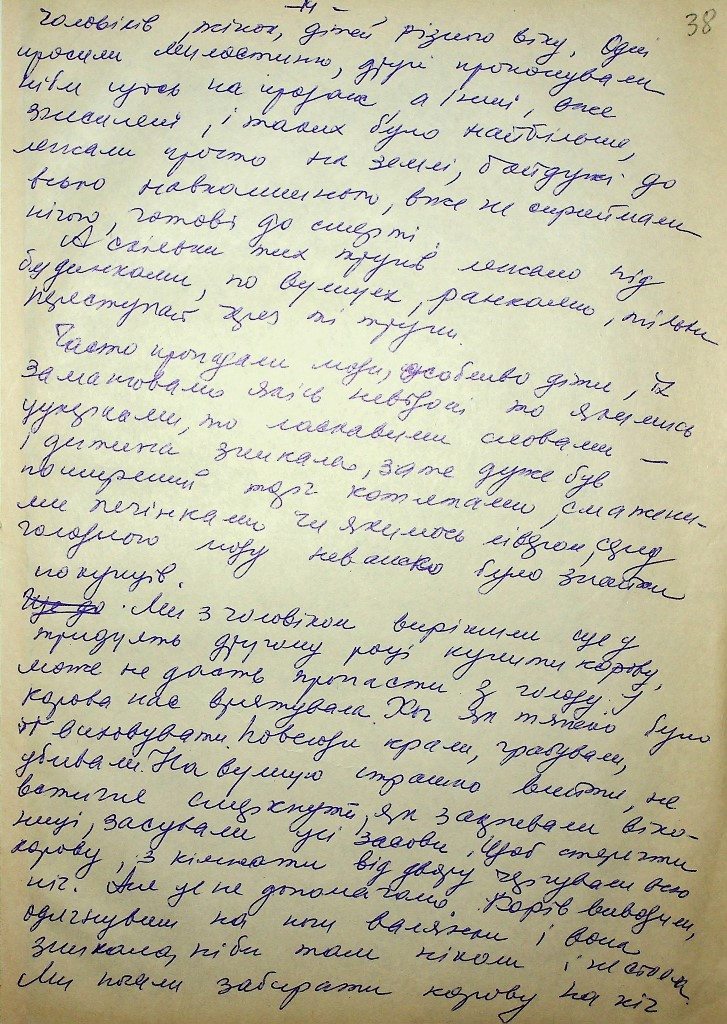 - 14 -
38
чоловіків, жінок, дітей різного віку. Одні
просили милостиню, другі пропонували
ніби щось на продаж, а інші, вже
знесилені, і таких було найбільше,
лежали просто на землі, байдужі до
всього навколишнього, вже не сприймали
нічого, готові до смерті.
А скільки тих трупів лежало під
будинками, по вулицях, ранками, тільки
переступай через ті трупи.
Часто пропадали люди, особливо діти, їх
заманювали якісь невідомі то якимись
цукерками, то ласкавими словами —
і дитина зникала, зате дуже був
поширений торг котлетами, смажени-
ми печінками чи якимось лівером, серед
голодного люду неважко було знайти
покупців.
Ще до. Ми з чоловіком вирішили ще у
тридцять другому році купити корову,
може не дасть пропасти з голоду. І
корова нас врятувала. Хоч як тяжко було
її виховувати. Повсюди крали, грабували,
убивали. На вулицю страшно вийти, не
встигне смеркнути, як закривали віко-
ниці, засували усі засови. Щоб стерегти
корову, з кімнати від двору чергували всю
ніч. Але це не допомагало. Корів виводили,
одягнувши на ноги валянки і вона
зникала, ніби там ніколи і не стояла.
Ми почали забирати корову на ніч